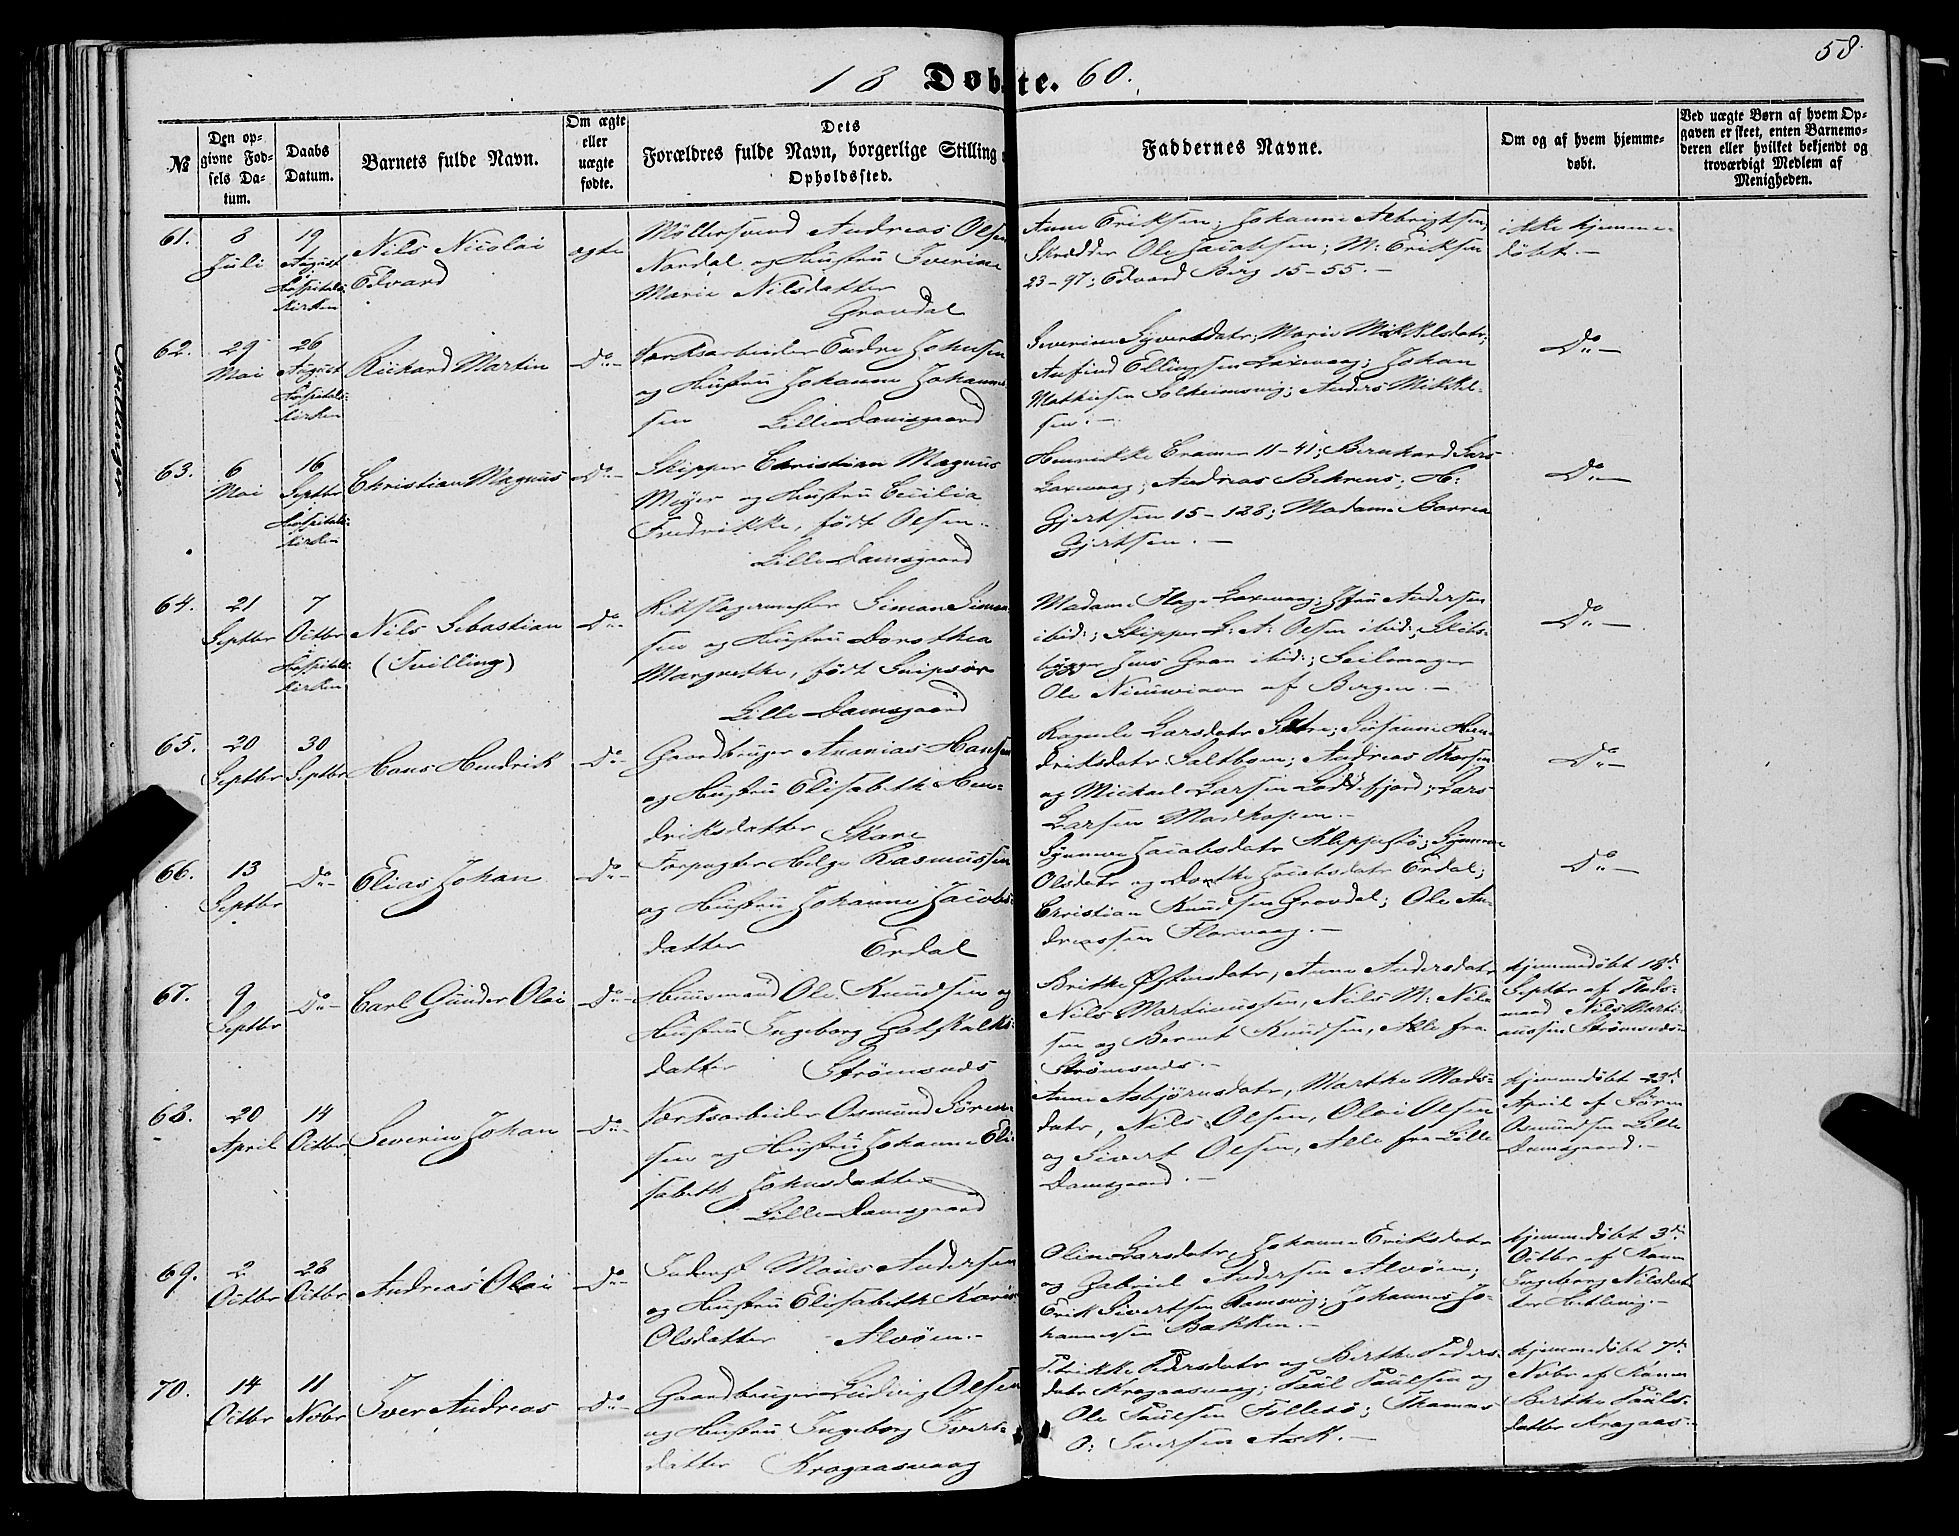 58
18 Døbte. 60.
№
Den op-
givne Fød-
sels Da-
tum.
Daabs
Datum.
Barnets fulde Navn.
Om ægte
eller
uægte
fødte.
Dets
Forældres fulde Navn, borgerlige Stilling
Opholdssted.
Faddernes Navne.
Om og af hvem hjemme-
døbt.
Ved uægte Børn af hvem Op-
gaven er skeet, enten Barnemo-
deren eller hvilket bekjendt og
troværdigt Medlem af
Menigheden.
61.
8
Juli
19
August
Hospitals-
kirken
Nils Nicolai
Edvard
ægte
Møllersvend Andreas Olsen
Nordal og Hustru Iverine
Marie Nilsdatter
Gravdal
Anne Eriksen; Johanne Albrigtsen;
Skrædder Ole Jacobsen; M: Eriksen
23-97; Edvard Berg 15-55.-
ikke hjemme-
døbt.-
62.
29
Mai
26
August
Hospitals-
kirken
Rickard Martin
Do-
Værksarbeider Endre Johnsen
og Hustru Johanne Johanne-
sen Lille Damsgaard
Severine Syversdatr; Marie Mikkelsdatr;
Anfind Ellingsen Laxevaag; Johan
Mathiesen Solheimsvig; Anders Mikkel-
sen.-
Do-
63.
6
Mai
16
Septbr
Hospitals-
kirken
Christian Magnus
Do-
Skipper Christian Magnus
Meyer og Hustru Cecilia
Fredrikke, født Olsen.
Lille Damsgaard
Henrikke Cramer 11-41; Bernhard Lars
Laxevaag; Andreas Behrens; H:
Gjertsen 15-128; Madame
Gjertsen.-
Do-
64.
21
Septbr
7
Octbr
Hospitals-
kirken
Nils Sebastian
(Tvilling)
Do-
Rebslagermester Simon Simon-
sen og Hustru Dorothea
Margrethe, født
Lille Damsgaard
Madame Flage Laxevaag; Jfru Andersen
ibid:; Skipper L: A: Olsen ibid:; Skibs-
bygger Jens Gran ibid:; Seilmager
Ole af Bergen.-
Do-
65.
20
Septbr
30
Septbr
Hans Hendrik
Do-
Gaardbruger Ananias Hansen
og Hustru Elisabeth Hen-
driksdatter Skare
Ragnele Larsdatr; Susanne Hen-
driksdatr Saltbom; Andreas
og Michael Larsen Loddefjord; Lars
Larsen
Do-
66.
13
Septbr
Do-
Elias Johan
Do-
Forpagter Helge Rasmussen
og Hustru Johanne Jacobs-
datter Erdal
Synneve Jacobsdatr Kleppestø; Synneve
Olsdatr og Dorthe Jacobsdatr Erdal;
Christian Knudsen Gravdal; Ole An-
dreassen Florvaag.-
Do-
67.
9
Septbr
Do-
Carl Gunder Olai
Do-
Huusmand Ole Knudsen og
Hustru Ingeborg Gotskalks-
datter Strømsnds
Brithe Østensdatr, Anne Andersdatr
Nils Martinussen, Niels M: Niel-
sen og Bernt Knudsen, Alle fra
Strømsnds.-
hjemmedøbt 18de
Septbr af Huus-
mand Nils Marti-
nussen Strømsnds-
68.
20
April
14
Octbr
Severin Johan
Do-
Værksarbeider Osmund Søren-
sen og Hustru Johanne Eli-
sabeth Johnsdatter
Lille Damsgaard
Anne Asbjørnsdatr, Marthe Mads-
datr, Nils Olsen, Olai Olsen
og Sivert Olsen, Alle fra Lille
Damsgaard.-
hjemmedøbt 23de
April af Søren
Osmundsen Lille
Damsgaard.-
69.
2
Octbr
28
Octbr
Andreas Olai
Do-
Inderst Mons Andersen
og Hustru Elisabeth Karine
Olsdatter Alvøen.-
Oline Larsdatr, Johanne Eriksdatr
og Gabriel Andersen Alvøen;
Erik Sivertsen Ramsvig; Johannes Jo-
hannessen Bakken.-
hjemmedøbt 3de
Octbr af Konen
Ingeborg Nilsdat
ter Hetlevig.-
70.
14
Octbr
11
Novbr
Iver Andreas
Do-
Gaardbruger Ludvig Olsen
og Hustru Ingeborg Ivers-
datter Kragaasvaag
Petrikke Pedersdatr og Berthe Peders-
datr Kragaasvaag; Paul Paulsen og
Ole Paulsen Follesø; Thomas
O: Iversen Ask.-
hjemmedøbt 7de
Novbr af Konen
Berthe Pauls-
datter Kragaas-